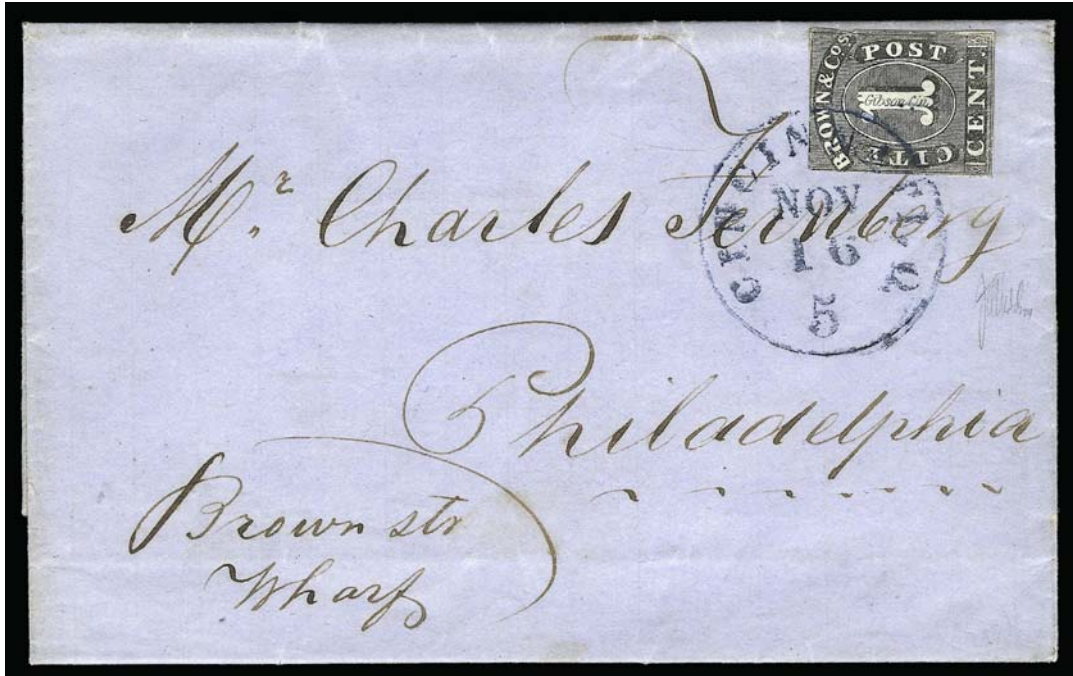 BROWN & CO'S.
POST
1
Gibson Cin.
CITY
CENT.
CINCINNATI O.
NOV
16
5
Mr. Charles Fernberg
Philadelphia
Brown str
Wharf